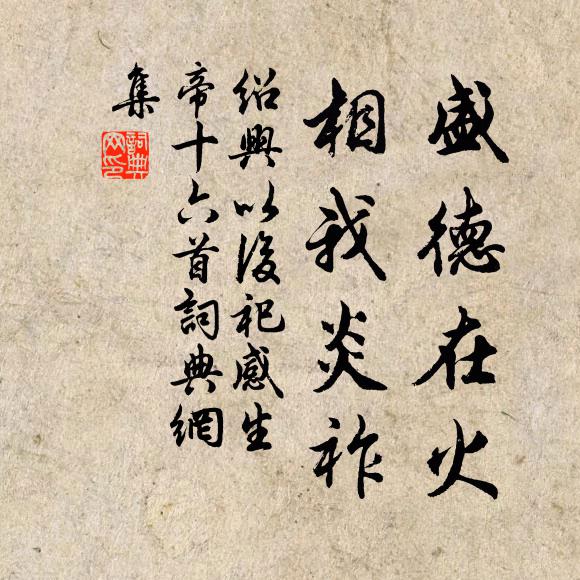 盛德在火
相我炎祚
紹興以後祀感生
帝十六首詞典網
集
詞典網印